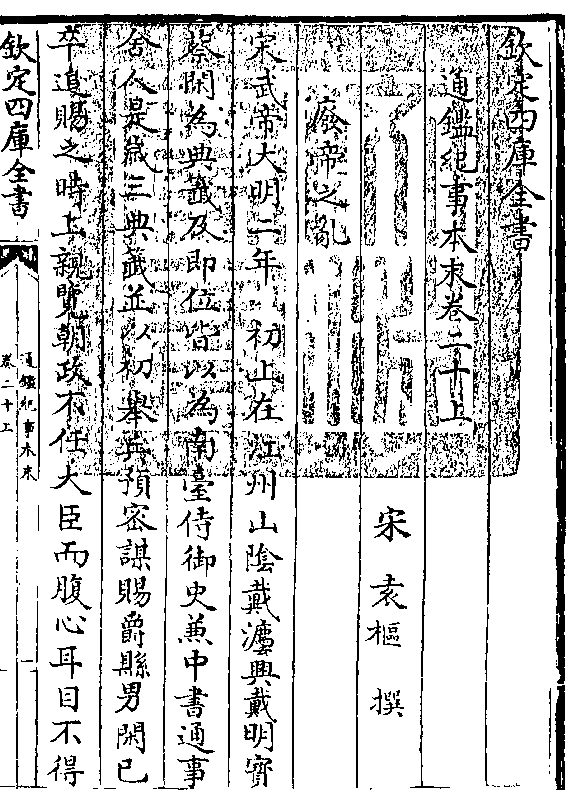 欽定四庫全書
通鑑紀事本末卷二十上
宋 袁樞 撰
廢帝之亂
宋武帝大明二年初上在江州山陰戴灋興戴明寳
蔡閑為典籖及即位皆以為南臺侍御史兼中書通事
舍人是歲三典籖並以初舉兵預密謀賜爵縣男閑已
卒追賜之時上親覽朝政不任大臣而腹心耳目不得
欽定四庫全書
通鑑紀事本末
卷二十上
一